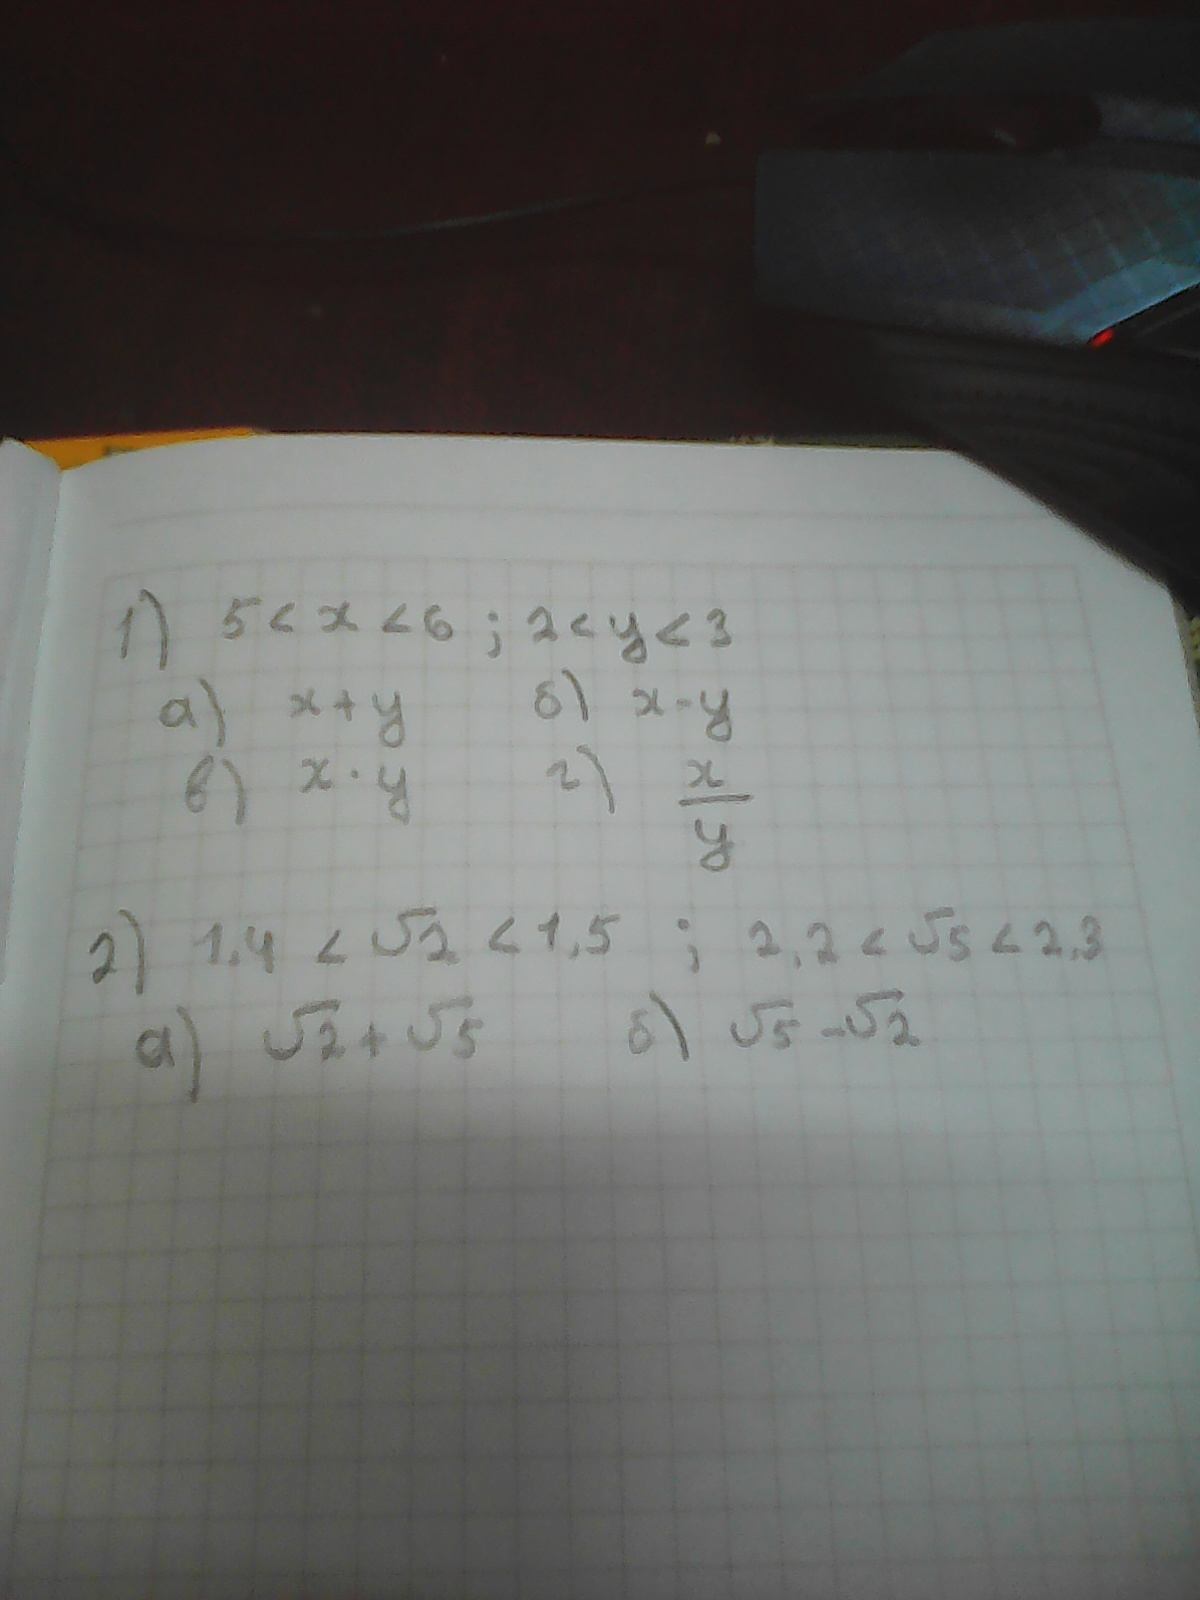 1) 5 < x < 6 ; 2 < y < 3
а) x + y б) x - y
в) x · y г) x/y
2) 1,4 < √2 < 1,5 ; 2,2 < √5 < 2,3
а) √2 + √5 б) √5 - √2